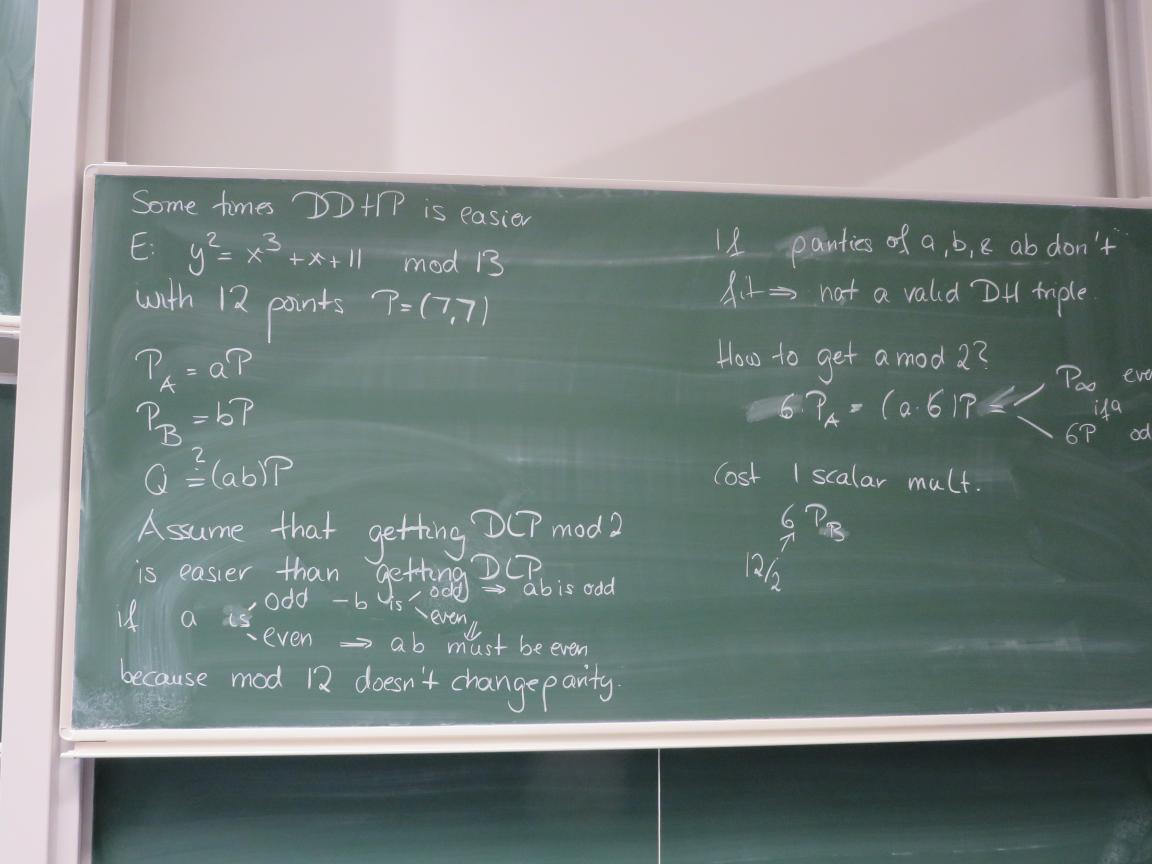 Some times DDHP is easier
E: y² = x³ + x + 11 mod 13
with 12 points P = (7,7)
P_A = aP
P_B = bP
Q ?= (ab)P
Assume that getting DLP mod 2
is easier than getting DLP
if a is odd – b is odd ⇒ ab is odd
even ⇓
even ⇒ ab must be even
because mod 12 doesn't change parity.
If parities of a, b, & ab don't
fit ⇒ not a valid DH triple.
How to get a mod 2?
6 P_A = (a·6)P = P∞ eve
if a
6P od
Cost 1 scalar mult.
6 P_B
12/2